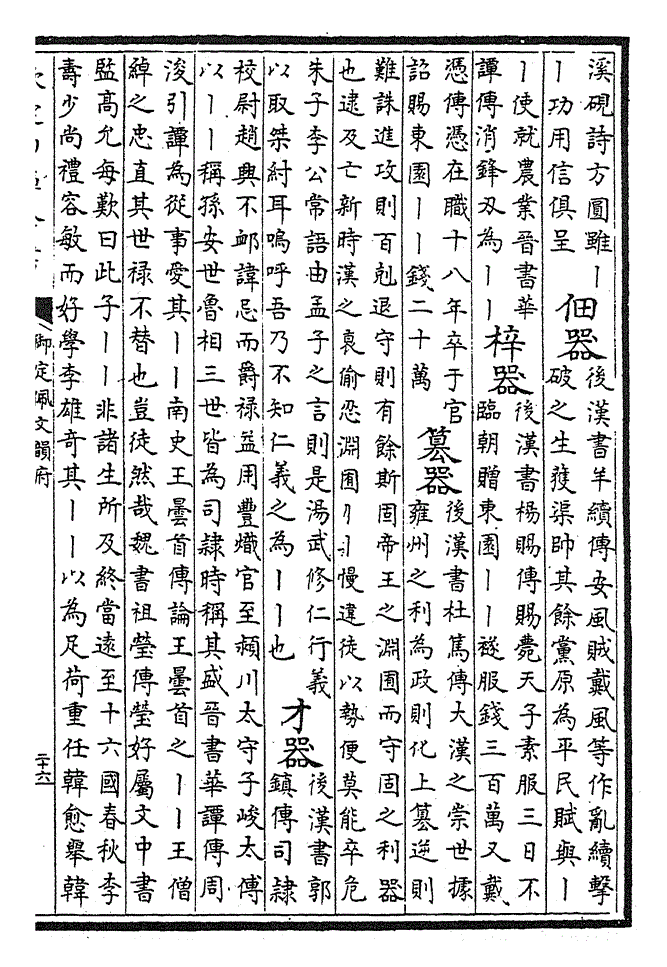 溪硯詩方圓雖丨
丨功用信俱呈
佃器
後漢書羊續傳安風賊戴風等作亂續擊
破之生獲渠帥其餘黨原為平民賦與丨
丨使就農業晉書華
譚傳消鋒刃為丨丨
梓器
後漢書楊賜傳賜薨天子素服三日不
臨朝贈東園丨丨襚服錢三百萬又戴
憑傳憑在職十八年卒于官
詔賜東園丨丨錢二十萬
篡器
後漢書杜篤傳大漢之崇世據
雍州之利為政則化上篡逆則
難誅進攻則百剋退守則有餘斯固帝王之淵囿而守固之利器
也逮及亡新時漢之衰偷忍淵囿丨丨慢違徒以勢便莫能卒危
朱子李公常語由孟子之言則是湯武修仁行義
以取桀紂耳嗚呼吾乃不知仁義之為丨丨也
才器
後漢書郭
鎮傳司隸
校尉趙興不卹諱忌而爵禄益用豐熾官至潁川太守子峻太傅
以丨丨稱孫安世魯相三世皆為司隸時稱其盛晉書華譚傳周
浚引譚為從事愛其丨丨南史王曇首傳論王曇首之丨丨王僧
綽之忠直其世禄不替也豈徒然哉魏書祖瑩傳瑩好屬文中書
監高允每歎曰此子丨丨非諸生所及終當遠至十六國春秋李
壽少尚禮容敏而好學李雄奇其丨丨以為足荷重任韓愈舉韓
御定佩文韻府
二十六